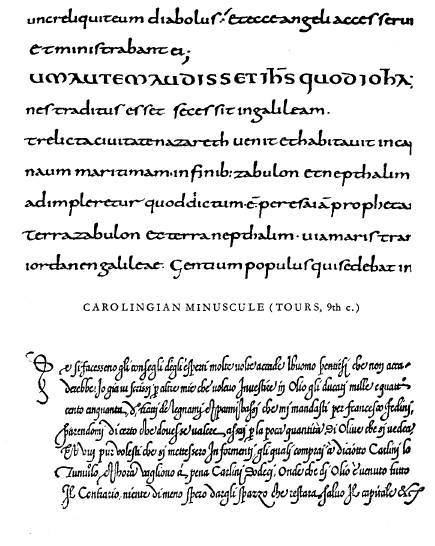 uncreliquiteum diabolus; Etecce angeli accesserun
etministrabant ei;
UMAUTEMAUDISSETIHS QUODIOHA
nes traditus esset secessit ingalileam.
Etrelictaciuitatenazareth uenit ethabitauit incap
naum maritimam. infinib: zabulon etnepthalim
adimpleretur quoddictum ÷ peresaiā prophetam
Terrazabulon etterranepthalim. uiamaris trans
iordanengalileae. Gentium populus quisedebat in
CAROLINGIAN MINUSCULE (TOURS, 9th c.)
Se si facesseno gli consegli degli esperti molte volte accade lhuomo pentirsi che non acca=
derebbe: Io gia vi scrissi per altre mie che voleuo Inuestire in Olio gli ducati mille e quattro
cento cinquanta, di ritratti de legnami, et panni bassi che mi mandasti per francesco fedini,
parendomi di certo che douesse valere assai per la poca quantità di Oliue che si vedea
Et voi pur volesti che si mettessero In formenti, gli quali comprai a diciotto Carlini lo
Tumulo, et hora vagliono à pena Carlini Dodeci, Onde che l'Olio è venuto tutto
Il Contrario, niente di meno spero dargli spazzo che restara saluo Il capitale &c